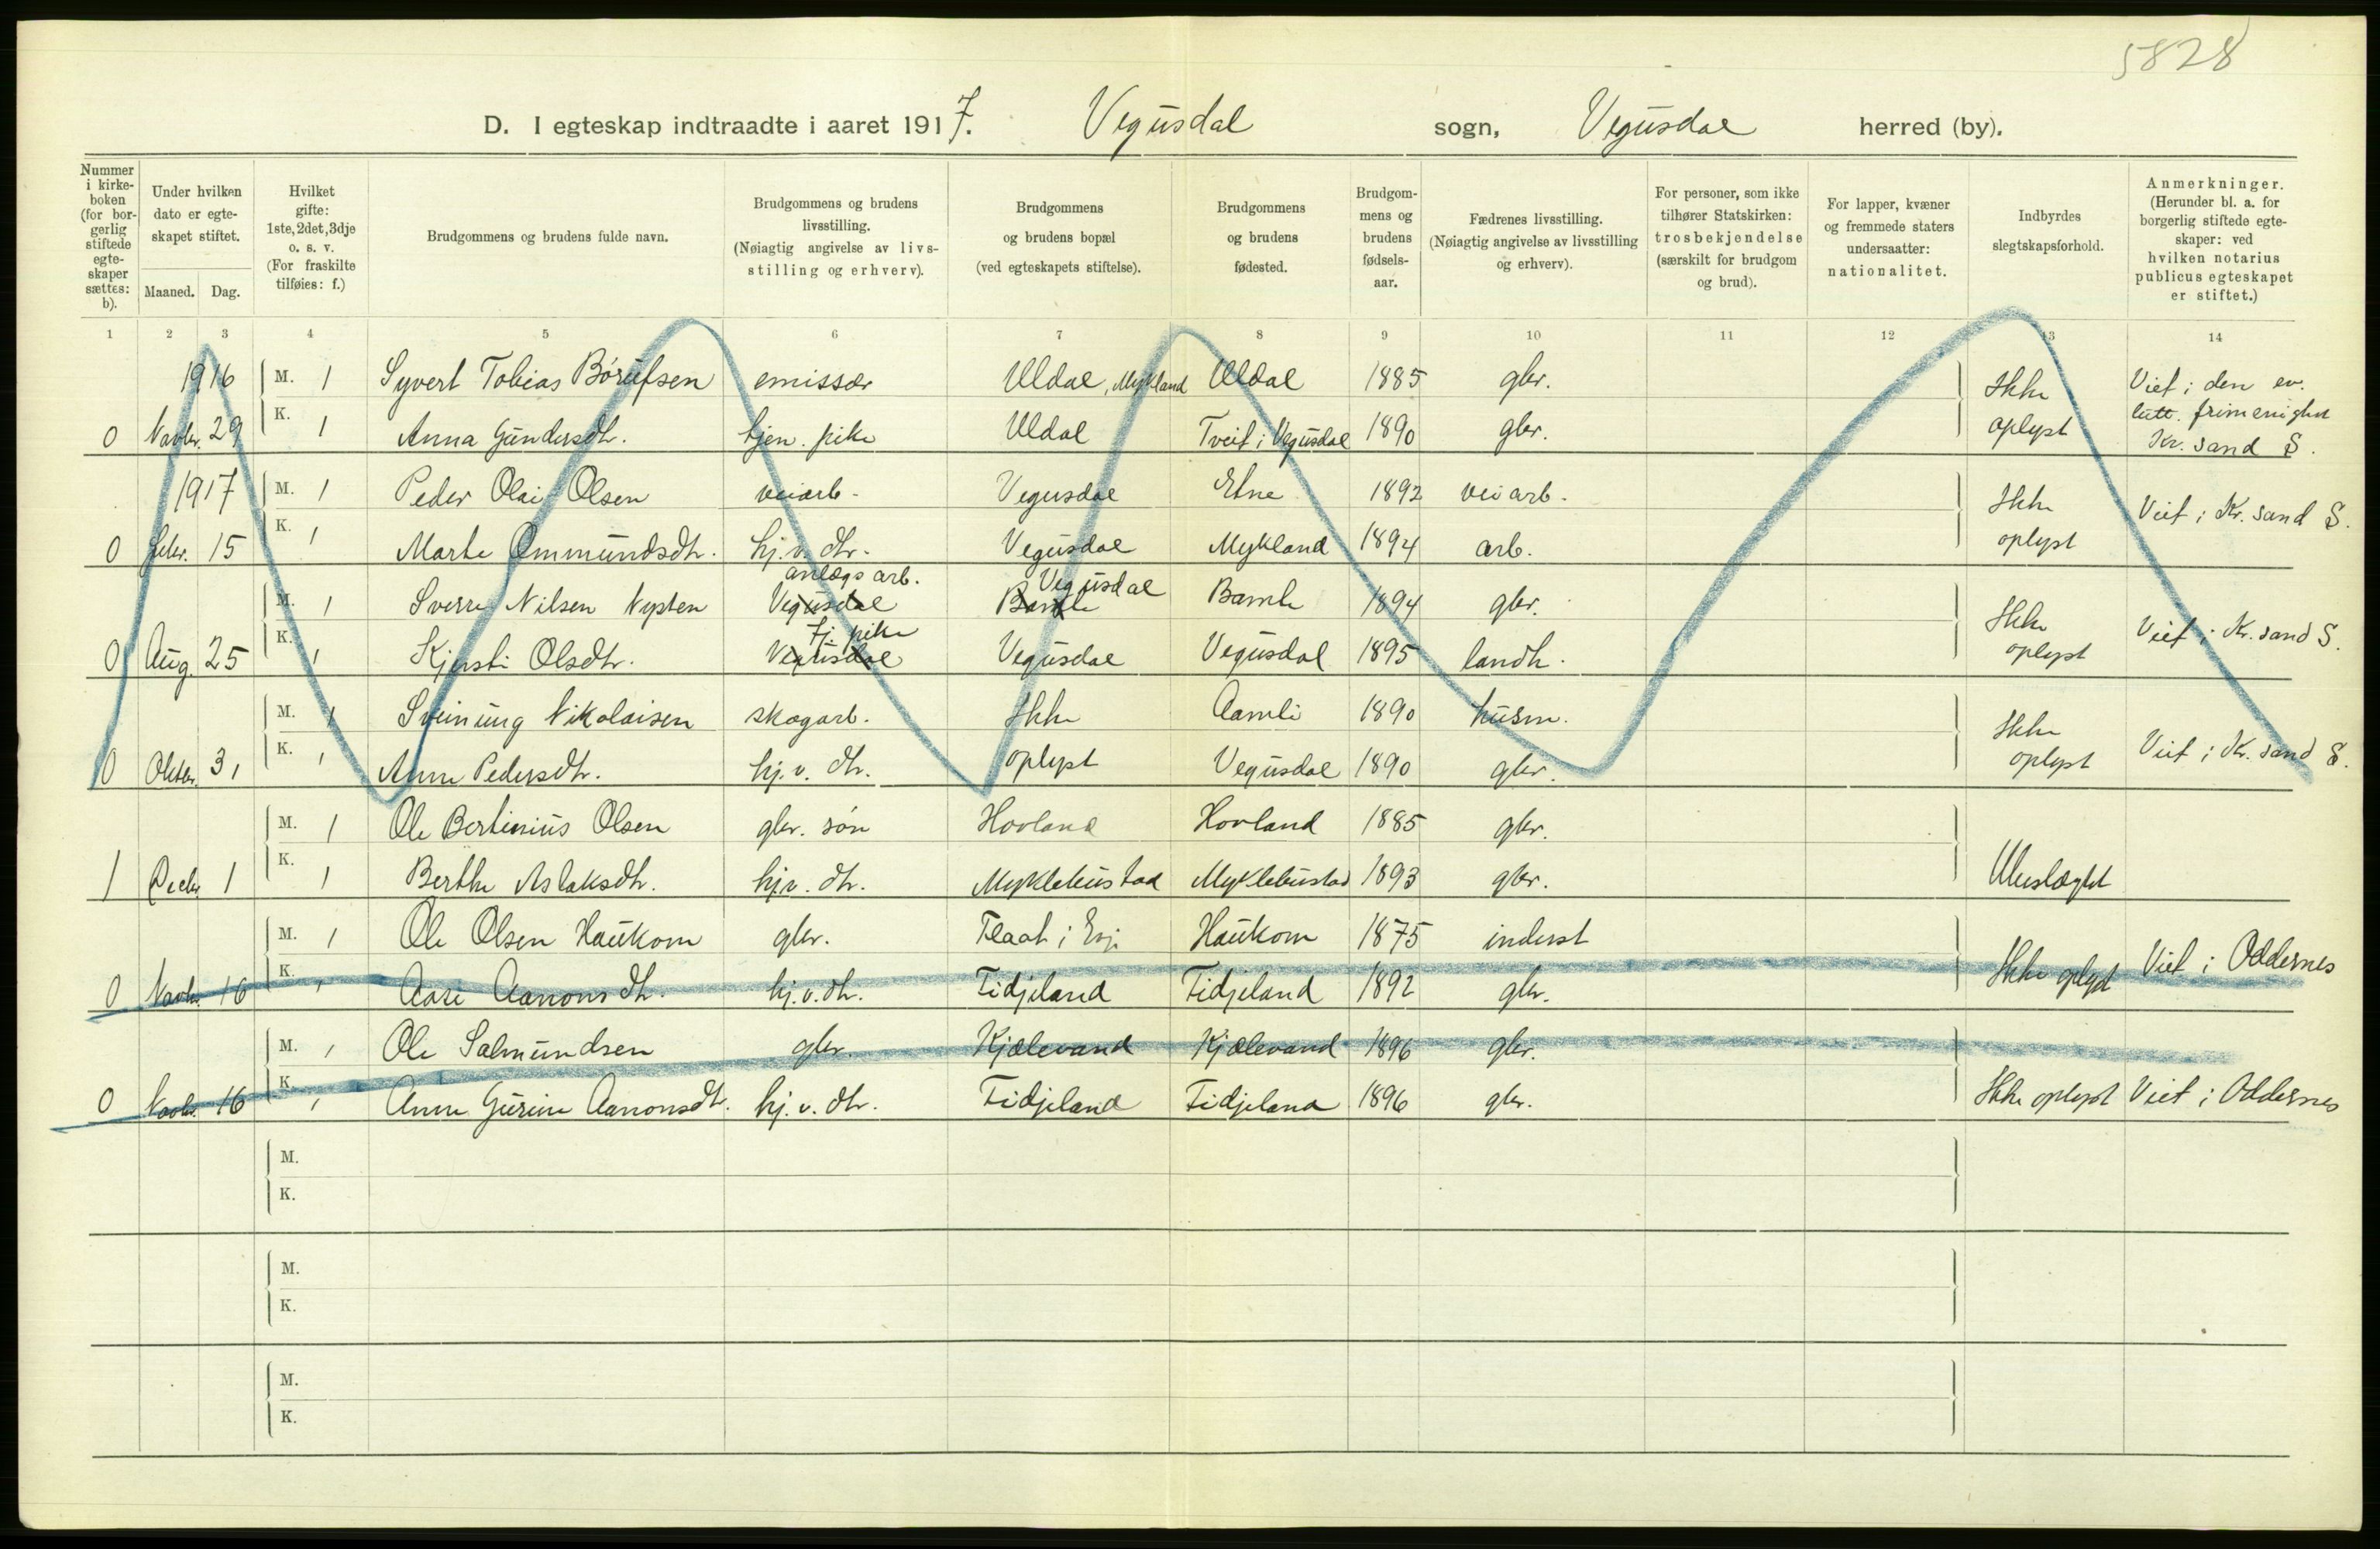 5828
D. I egteskap indtraadte i aaret 1917. Vegusdal sogn, Vegusdal herred (by).
Nummer i kirke-boken (for bor-gerlig stiftede egte-skaper sættes: b).
Under hvilken dato er egte-skapet stiftet.
Maaned. Dag.
Hvilket gifte: 1ste, 2det, 3dje o. s. v. (For fraskilte tilføies: f.)
Brudgommens og brudens fulde navn.
Brudgommens og brudens livsstilling. (Nøiagtig angivelse av livs-stilling og erhverv).
Brudgommens og brudens bopæl (ved egteskapets stiftelse).
Brudgommens og brudens fødested.
Brudgom-mens og brudens fødsels-aar.
Fædrenes livsstilling. (Nøiagtig angivelse av livsstilling og erhverv).
For personer, som ikke tilhører Statskirken: trosbekjendelse (særskilt for brudgom og brud).
For lapper, kvæner og fremmede staters undersaatter: nationalitet.
Indbyrdes slegtskapsforhold.
Anmerkninger. (Herunder bl. a. for borgerlig stiftede egte-skaper: ved hvilken notarius publicus egteskapet er stiftet.)
1 2 3 4 5 6 7 8 9 10 11 12 13 14
1916 M. 1 Syvert Tobias Børufsen emissær Uldal, Mykland Uldal 1885 gbr. Ikke Viet i den ev.
0 Novbr. 29 K. 1 Anna Gundersdtr. tjen. pike Uldal Tveit i Vegusdal 1890 gbr. oplyst lutt. frimenighet
Kr. sand S.
1917 M. 1 Peder Olai Olsen veiarb. Vegusdal Etne 1892 vei arb. Ikke Viet i Kr. sand S.
0 Febr. 15 K. 1 Marte Ommundsdtr. hj. v. dtr. Vegusdal Mykland 1894 arb. oplyst
anlægs arb. Vegusdal
M. 1 Sverre Nilsen Nysten Vegusdal Bamle Bamle 1894 gbr. Ikke Viet i Kr. sand S.
tj. pike
0 Aug. 25 K. 1 Kjersti Olsdtr. Vegusdal Vegusdal Vegusdal 1895 landh. oplyst
M. 1 Sveinung Nikolaisen skogarb. Ikke Aamli 1890 husm. Ikke Viet i Kr. sand S.
0 Oktbr. 31 K. 1 Anne Pedersdtr. hj. v. dtr. oplyst Vegusdal 1890 gbr. oplyst
M. 1 Ole Bertinius Olsen gbr. søn Hovland Hovland 1885 gbr.
1 Decbr. 1 K. 1 Berthe Aslaksdtr. hj. v. dtr. Myklebustad Myklebustad 1893 gbr. Ubeslægtet
M. 1 Ole Olsen Haukom gbr. Flaat i Evje Haukom 1875 inderst Viet i Oddernes
0 Novbr. 16 K. 1 Aase Aanonsdtr. hj. v. dtr. Fidjeland Fidjeland 1892 gbr. Ikke oplyst
M. 1 Ole Salmundsen gbr. Kjælevand Kjælevand 1896 gbr.
0 Novbr. 16 K. 1 Anne Gurine Aanonsdtr. hj. v. dtr. Fidjeland Fidjeland 1896 gbr. Ikke oplyst Viet i Oddernes
M.
K.
M.
K.
M.
K.